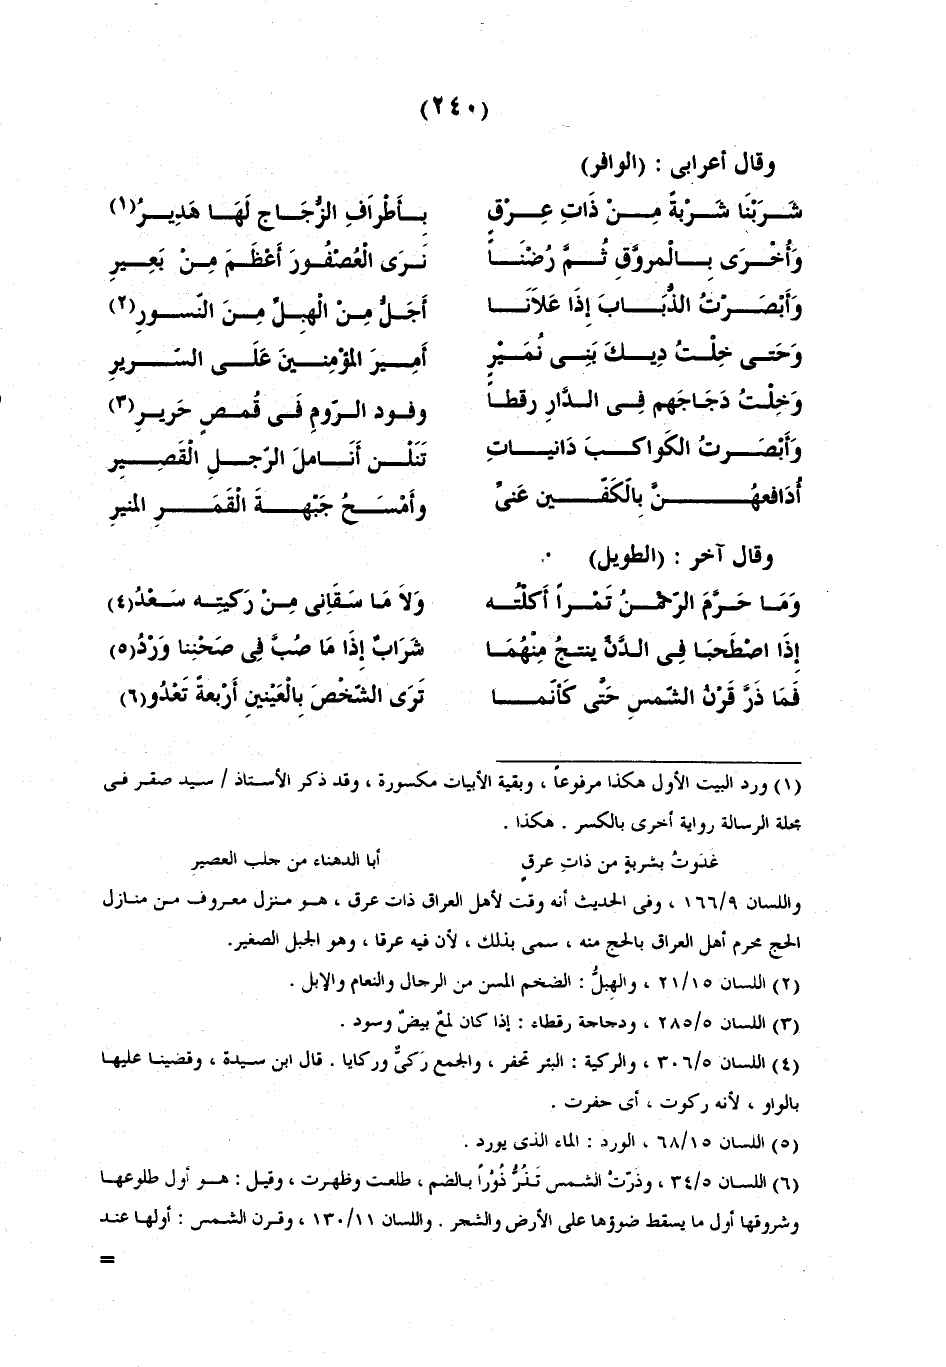 (٢٤٠)
وقال أعرابى : (الوافر)
شَرَبْنَا شَرْبةً مِنْ ذَاتِ عِرْقٍ بأَطْرَافِ الزُّجَاجِ لَهَا هَدِيرُ(١)
وَأُخْرَى بالْمروَّقِ ثُمَّ رُضْنَا نَرَى الْعُصْفُورَ أَعْظَمَ مِنْ بَعِيرِ
وَأَبْصَرْتُ الذُّبَابَ إِذَا عَلَاَنَا أَجَلُّ مِنْ الْهِبلِّ مِنَ النّسورِ(٢)
وَحَتى خِلْتُ دِيكَ بَنِى نُمَيْرٍ أَمِيرَ المؤْمِنِينَ عَلَى السَّرِيرِ
وَخِلْتُ دَجَاجَهم فِى الدَّارِ رقطاً وفود الرّومِ فَى قُمصٍ حَرِيرِ(٣)
وَأَبْصَرتُ الكَواكبَ دَانيَاتِ تَنَلْن أَنَامِلَ الرّجلِ الْقَصِيرِ
أُدَافعهُنَّ بِالَكَفَّيِن عَنىِّ وأَمْسَحُ جَبْهةَ الْقَمَرِ المنيرِ
وقال آخر : (الطويل)
وَمَا حَرَّمَ الرّحْمنُ تَمْراً أَكلْتُه وَلاَ مَا سَقَانِى مِنْ رَكيتِه سَعْدُ(٤)
إِذَا اصْطَحبَا فِى الدَّنِّ ينتجُ مِنْهُمَا شَرَابٌ إِذَا مَا صُبَّ فِى صَحْنِنا وَرْدُ(٥)
فَمَا ذَرَّ قَرْنُ الشّمسِ حَتَّى كَأنَّمَا تَرَى الشّخْصَ بِالْعَيْنينِ أَرْبعةً تَعْدُو(٦)
(١) ورد البيت الأول هكذا مرفوعاً ، وبقية الأبيات مكسورة ، وقد ذكر الأستاذ / سيد صقر فى
مجلة الرسالة رواية أخرى بالكسر . هكذا .
غدَوتُ بشربةٍ من ذاتِ عرقٍ أبا الدهناء من حلب العصير
واللسان ١٦٦/٩ ، وفى الحديث أنه وقت لأهل العراق ذات عرق ، هو منزل معروف من منازل
الحج محرم أهل العراق بالحج منه ، سمى بذلك ، لأن فيه عرقا ، وهو الجبل الصغير.
(٢) اللسان ٢١/١٥ ، والهِبلُّ : الضخم المسن من الرجال والنعام والإبل .
(٣) اللسان ٢٨٥/٥ ، ودجاجة رقطاء : إذا كان لمعٌ بيضٌ وسود .
(٤) اللسان ٣٠٦/٥ ، والركية : البئر تحفر ، والجمع رَكىٌّ وركايا . قال ابن سيدة ، وقضينا عليها
بالواو ، لأنه ركوت ، أى حفرت .
(٥) اللسان ٦٨/١٥ ، الورد : الماء الذى يورد .
(٦) اللسان ٣٤/٥ ، وذرّتْ الشمس تَذُرُّ ذُوْراً بالضم ، طلعت وظهرت ، وقيل : هو أول طلوعها
وشروقها أول ما يسقط ضوؤها على الأرض والشجر . واللسان ١٣٠/١١ ، وقرن الشمس : أولها عند
=